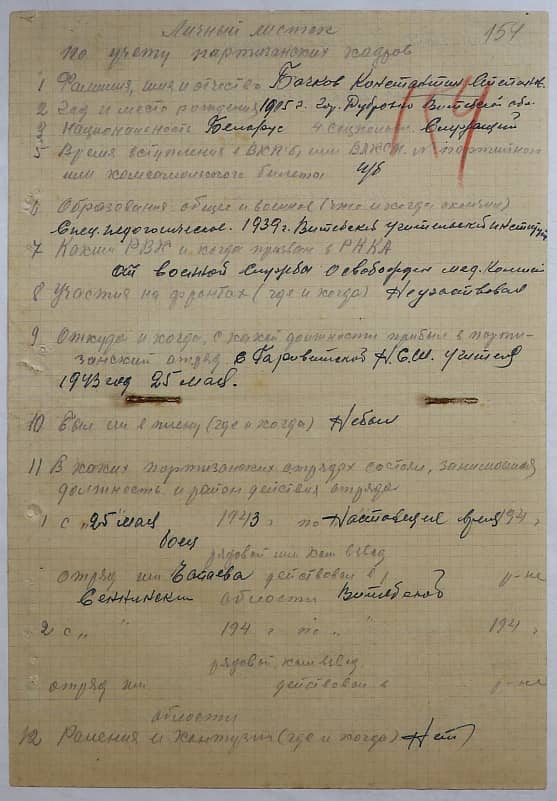 Личный листок 154
по учету партизанских кадров
1 Фамилия, имя и отчество Бочков Константин Степанов.
2 Год и место рождения 1915 г. Дубровно Витебской обл.
3 Национальность Беларус 4 соцположен. Служащий
Время вступления в ВКП/б, или ВЛКСМ и № партийного
или комсомольского билета н/б
6 Образование общее и военное (что и когда окончил)
Спец. педогогическое. 1939 г. Витебский учительский институт
7 Каким РВК и когда призван в РККА
От военной службы освобожден мед. комисией
8 Участие на фронтах (где и когда) Неучаствовал
9 Откуда и когда, с какой должности прибыл в парти-
занский отряд с Н.С.Ш. учителя
1943 год 25 мая.
10 Был ли в плену (где и когда) Небыл
11 В каких партизанских отрядах состоял, занимаемая
должность и район действия отряда
1 с "25" мая 1943 г по Настоящие время 194 г
боец
рядовой или ком взвод
отряд им Чапаева действовал в р-не
Сеннинский области Витебской
2 с " " 194 г по " " 194 г
рядовой, ком взвод
отряд им действовал в р-не
области
12 Ранения и контузии (где и когда) Нет